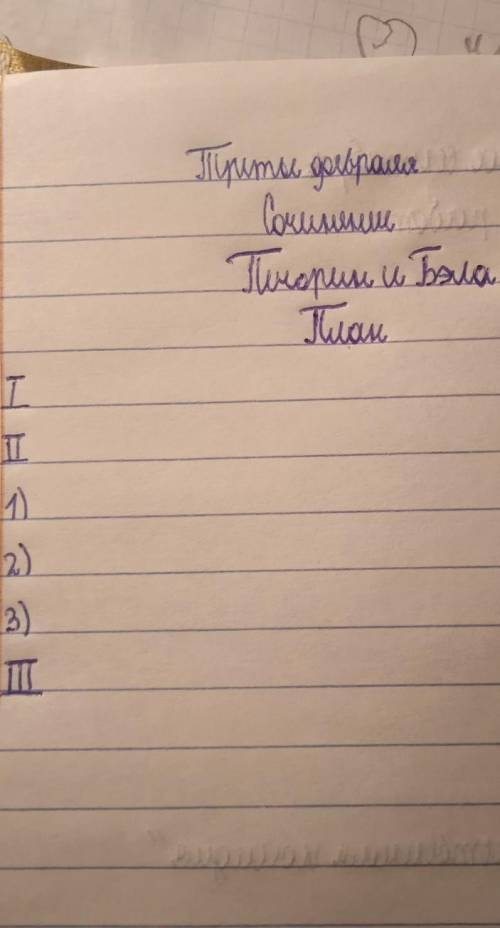 Третье февраля
Сочинение
Печорин и Бэла
План
I
II
1)
2)
3)
III